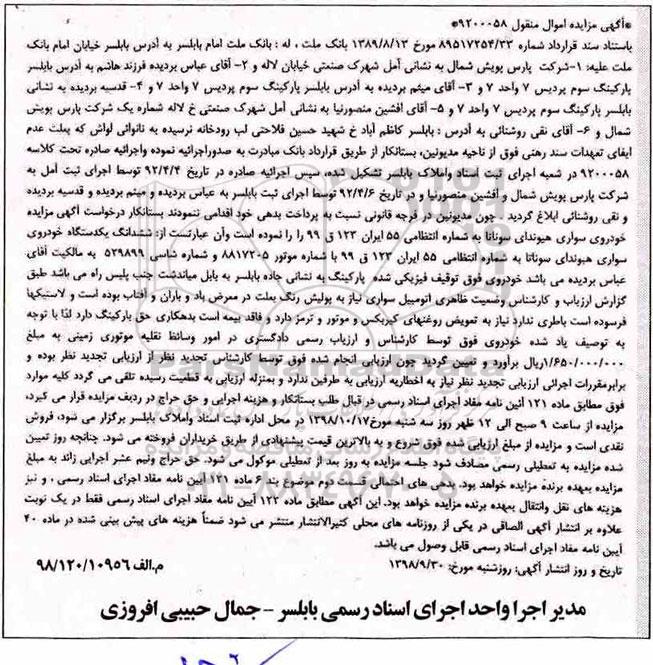 *آگهی مزایده اموال منقول ۹۲۰۰۰۵۸*
باستناد سند قرارداد شماره ۸۹۵۱۷۲۵۴/۳۳ مورخ ۱۳۸۹/۸/۱۳ بانک ملت ، له : بانک ملت امام بابلسر به آدرس بابلسر خیابان امام بانک
ملت علیه: ۱-شرکت پارس پویش شمال به نشانی آمل شهرک صنعتی خیابان لاله و ۲- آقای عباس بردیده فرزند هاشم به آدرس بابلسر
پارکینگ سوم پردیس ۷ واحد ۷ و ۳- آقای میثم بردیده به آدرس بابلسر پارکینگ سوم پردیس ۷ واحد ۷ و ۴- قدسیه بردیده به نشانی
بابلسر پارکینگ سوم پردیس ۷ واحد ۷ و ۵- آقای افشین منصورنیا به نشانی آمل شهرک صنعتی خ لاله شماره یک شرکت پارس پویش
شمال و ۶- آقای نقی روشنائی به آدرس : بابلسر کاظم آباد خ شهید حسین فلاحتی لب رودخانه نرسیده به نانوائی لواش که بعلت عدم
ایفای تعهدات سند رهنی فوق از ناحیه مدیونین، بستانکار از طریق قرارداد بانک مبادرت به صدوراجرائیه نموده واجرائیه صادره تحت کلاسه
۹۲۰۰۰۵۸ در شعبه اجرای ثبت اسناد واملاک بابلسر تشکیل شده، سپس اجرائیه صادره در تاریخ ۹۲/۴/۴ توسط اجرای ثبت آمل به
شرکت پارس پویش شمال و افشین منصورنیا و در تاریخ ۹۲/۴/۶ توسط اجرای ثبت بابلسر به عباس بردیده و میثم بردیده و قدسیه بردیده
و نقی روشنائی ابلاغ گردید . چون مدیونین در فرجه قانونی نسبت به پرداخت بدهی خود اقدامی ننمودند بستانکار درخواست آگهی مزایده
خودروی سواری هیوندای سوناتا به شماره انتظامی ۵۵ ایران ۱۲۳ ق ۹۹ را را نموده است وآن عبارتست از: ششدانگ یکدستگاه خودروی
سواری هیوندای سوناتا به شماره انتظامی ۵۵ ایران ۱۲۳ ق ۹۹ با شماره موتور ۸۸۱۷۲۰۵ و شماره شاسی ۵۲۹۸۹۹ به مالکیت آقای
عباس بردیده می باشد خودروی فوق توقیف فیزیکی شده پارکینگ به نشانی جاده بابلسر به بابل میاندشت جنب پلیس راه می باشد طبق
گزارش ارزیاب و کارشناس وضعیت ظاهری اتومبیل سواری نیاز به پولیش رنگ بعلت در معرض باد و باران و آفتاب بوده است و لاستیکها
فرسوده است باطری ندارد نیاز به تعویض روغنهای گیربکس و موتور و ترمز دارد و فاقد بیمه است بدهکاری حق پارکینگ دارد لذا با توجه
به توصیف یاد شده خودروی فوق توسط کارشناس و ارزیاب رسمی دادگستری در امور وسائط نقلیه موتوری زمینی به مبلغ
۱/۶۵۰/۰۰۰/۰۰۰ریال برآورد و تعیین گردید چون ارزیابی انجام شده فوق توسط کارشناس تجدید نظر از ارزیابی تجدید نظر بوده و
برابرمقررات اجرائی ارزیابی تجدید نظر نیاز به اخطاریه ارزیابی به طرفین ندارد و بمنزله ارزیابی به قطعیت رسیده تلقی می گردد کلیه موارد
فوق مطابق ماده ۱۲۱ آئین نامه مفاد اجرای اسناد رسمی در قبال طلب بستانکار و هزینه اجرایی و حق حراج در ردیف مزایده قرار می گیرد،
مزایده از ساعت ۹ صبح الی ۱۲ ظهر روز سه شنبه مورخ۱۳۹۸/۱۰/۱۷ در محل اداره ثبت اسناد واملاک بابلسر برگزار می شود، فروش
نقدی است و مزایده از مبلغ ارزیابی شده فوق شروع و به بالاترین قیمت پیشنهادی از طریق خریداران فروخته می شود. چنانچه روز تعیین
شده مزایده به تعطیلی رسمی مصادف شود جلسه مزایده به روز بعد از تعطیلی موکول می شود. حق حراج ونیم عشر اجرایی زائد به مبلغ
مزایده بعهده برنده مزایده خواهد بود. بدهی های احتمالی قسمت دوم موضوع بند ۶ ماده ۱۲۱ آئین نامه مفاد اجرای اسناد رسمی ، و نیز
هزینه های نقل وانتقال بعهده برنده مزایده خواهد بود. این آگهی مطابق ماده ۱۲۲ آیین نامه مفاد اجرای اسناد رسمی فقط در یک نوبت
علاوه بر انتشار آگهی الصاقی در یکی از روزنامه های محلی کثیرالانتشار منتشر می شود ضمناً هزینه های پیش بینی شده در ماده ۴۰
آیین نامه مفاد اجرای اسناد رسمی قابل وصول می باشد.
تاریخ و روز انتشار آگهی: روزشنبه مورخ: ۱۳۹۸/۹/۳۰ م.الف ۹۸/۱۲۰/۱۰۹۵۶
مدیر اجرا واحد اجرای اسناد رسمی بابلسر - جمال حبیبی افروزی
ParsNamadData